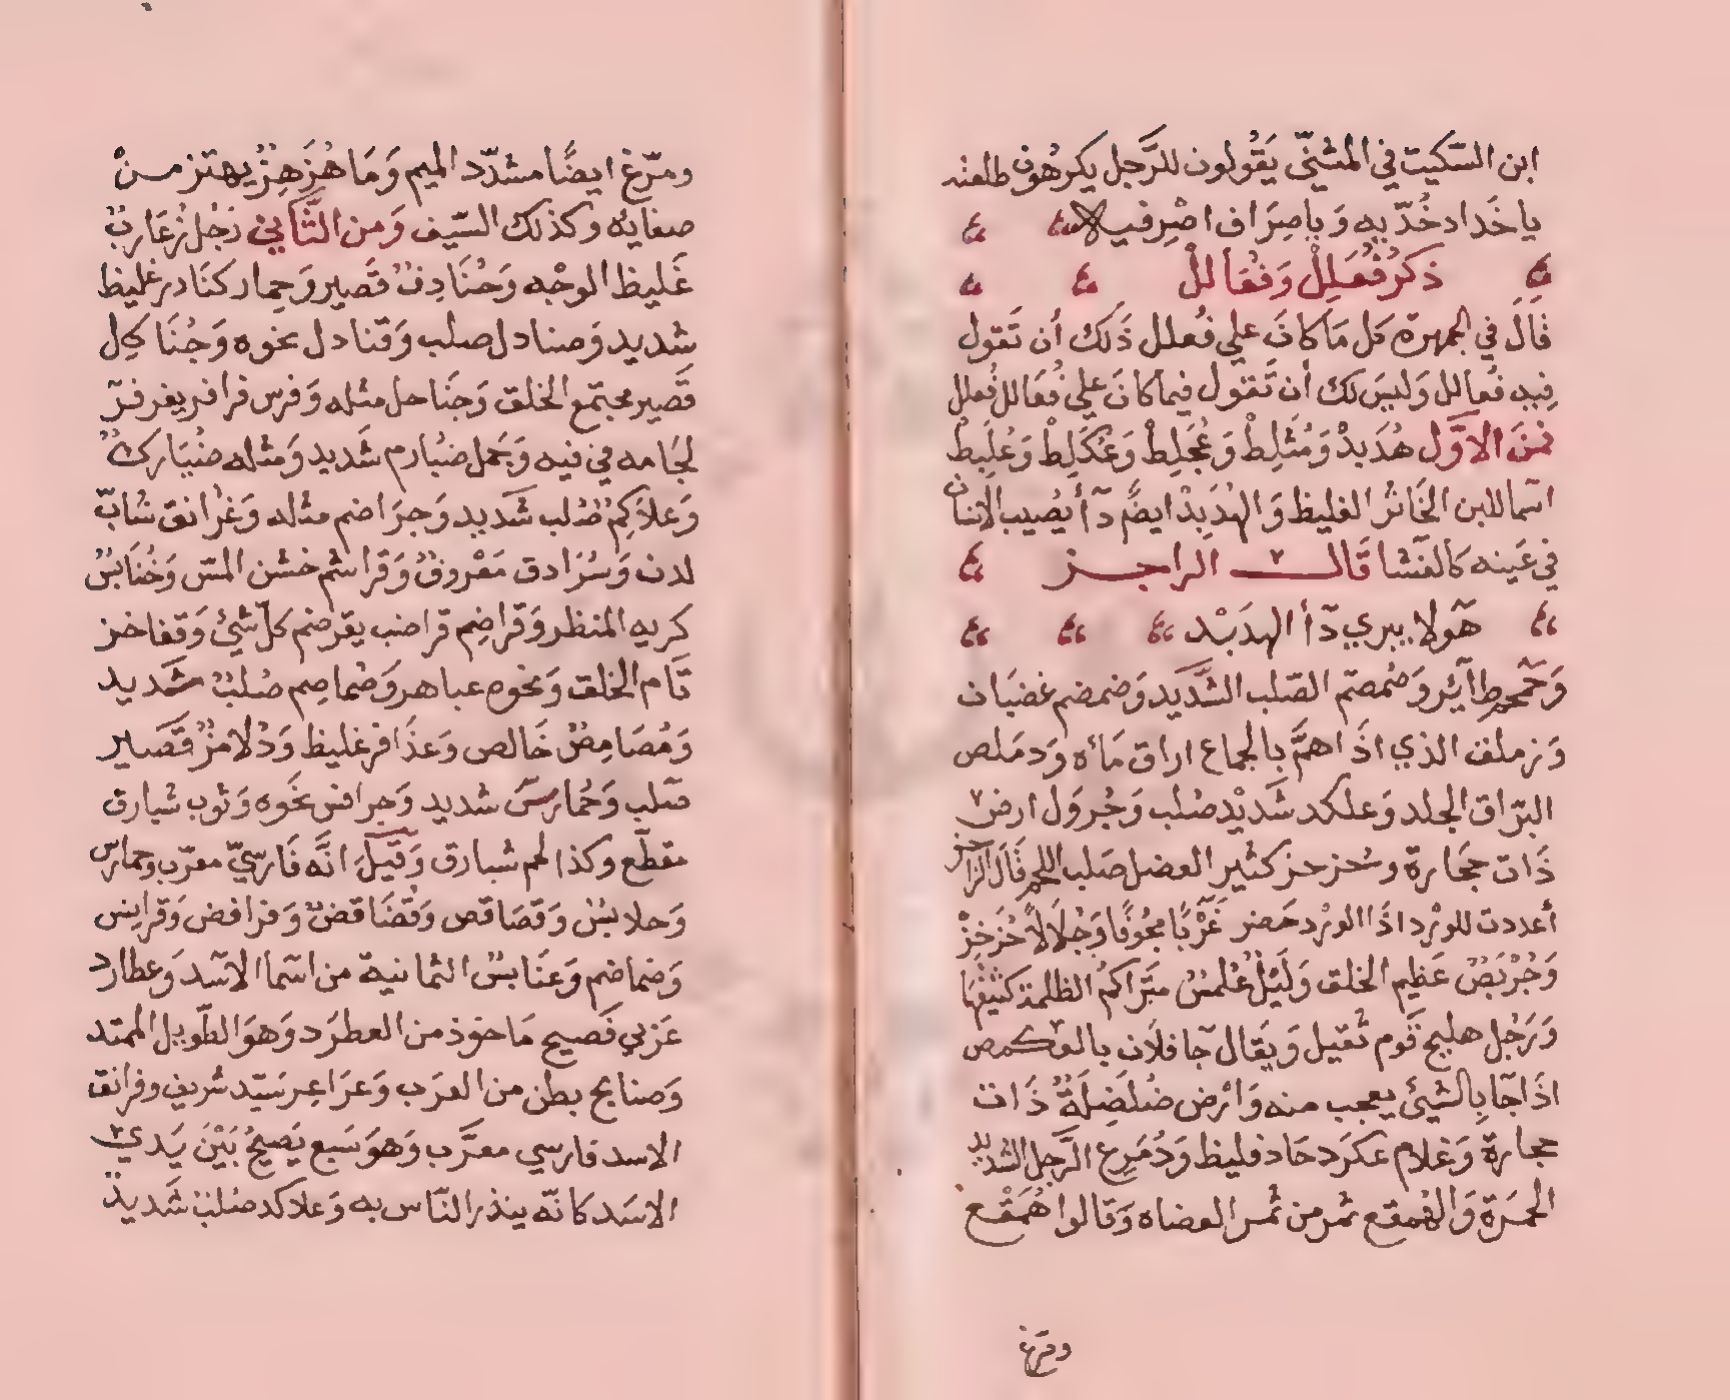 ابن السّكيت في المثنّى يَقُولون للرَّجل يكرهُون طلعته
يا حَداد حُدّيه وَيا صِرَاف اصْرِفيه
ذكرُ فُعَلِلْ وَفُعَالل
قالَ في الجمهرة كل مَا كانَ علي فُعلل ذَلك أن تَقول
فيه فُعالل وَليسَ لك أن تَقول فيما كانَ علي فُعَالل فُعلل
فمنَ الاوَّل هُدَبِدْ وَعُثَلِطْ وَعُجَلِطْ وَعُكَلِطْ وَعُلَبِطْ
اسما للبن الخَاثر الغليظ وَالهُدَبِدْ ايضًا دآء يُصيب الانسان
في عَينه كالغشا قَالــ الراجــز
هَولا يبري دآء الهدَبدْ
وَحمَحِم طآئر وَصُمصم الصّلب الشّدَيد وَضمضم غضبَان
وَزملق الذي اذَا همَّ بالجماع اراق مَاءه وَدمَلص
البرّاق الجلد وَعلكد شَديْد صُلب وَجُروَل ارض
ذَات حجَارة وخزخز كثير العضل صَلب اللحم قَالَ الرّاجز
أعددت للورْد اذَا الورْد حَضر غَرْبًا مجُوفًا وَجُلَالاً خُزَخِزْ
وَجُرْبَضٌ عَظيم الخلق وَلَيْلٌ عُلمسٌ متَراكم الظلمة كثيفها
وَرَجُل هلبج قَوم ثُقيل وَيَقال جا فلَان بالعكمص
اذَا جَآ بالشيْئ يعجب منه وَارْض ضُلَضِلَةٌ ذَات
حجارة وَغلام عكرَد حَادر غليظ وَدُمَرِع الرَّجل الشديد
الحمرَة وَالهمقع ثمر من ثمر العضاه وَقالوا هُمَقْع
وَمَرّغ ايضًا مشدّد الميم وَمَا هُزَهِزٌ يهتز مــنْ
صفايه وكذلك السّيف وَمن الثَّاني رَجُل زعَاربٌ
غَليظ الوجْه وَحُنَادِفٌ قَصير وَحِمار كنَادر غليظ
شديد وَصنادل صلب وَقنادل نحوه وَجُنَاكِل
قَصير مجتمع الخلق وَجنَاحل مثله وَفرس فرافر يفرفر
لجَامه في فيه وَجَمل ضبُارم شَديد وَمثله ضُبَاركٌ
وَعلَاكِمٌ صُلب شَديد وَجرَاضم مثله وَغرْانق شابٌ
لدن وَسُرَادق مَعْروفٌ وَقراشم خشن المسّ وَخُنَابسٌ
كريه المنظر وَقراضِم قراضب يقرضم كلّ شَيْئ وَقفاخر
تَام الخلق وَنحوه عباهر وَصُماصِم صُلبٌ شَديد
وَمُصَامِصٌ خَالص وَعذَافر غليظ وَدُلامزٌ قَصَير
صَلب وَحُمارسَ شديد وَجرافس نحَوه وَثوب شبارق
مقطّع وكذا لحم شبارق وَقيَلَ انَّه فَارسيّ معرّب وحمارس
وَحلابسٌ وَقصَاقص وَقُضَاقضٌ وَفرافض وَقرانِس
وَضماضم وَعنَابسٌ الثمانية من اسَما الاسَد وَعطارد
عَزبي فَصيح مَا خوذ من العطرَد وَهوَ الطّويل الممتد
وَصنابح بطن من العرَب وَعرَاعِر سَيّد شريف وفرانق
الاسد فارسي معرَّب وَهوَ سَبع يَصيحُ بَيْنَ يَدي
الاسَد كانّه ينذر النّاس به وَعلاكد صُلبٌ شَديدٌ